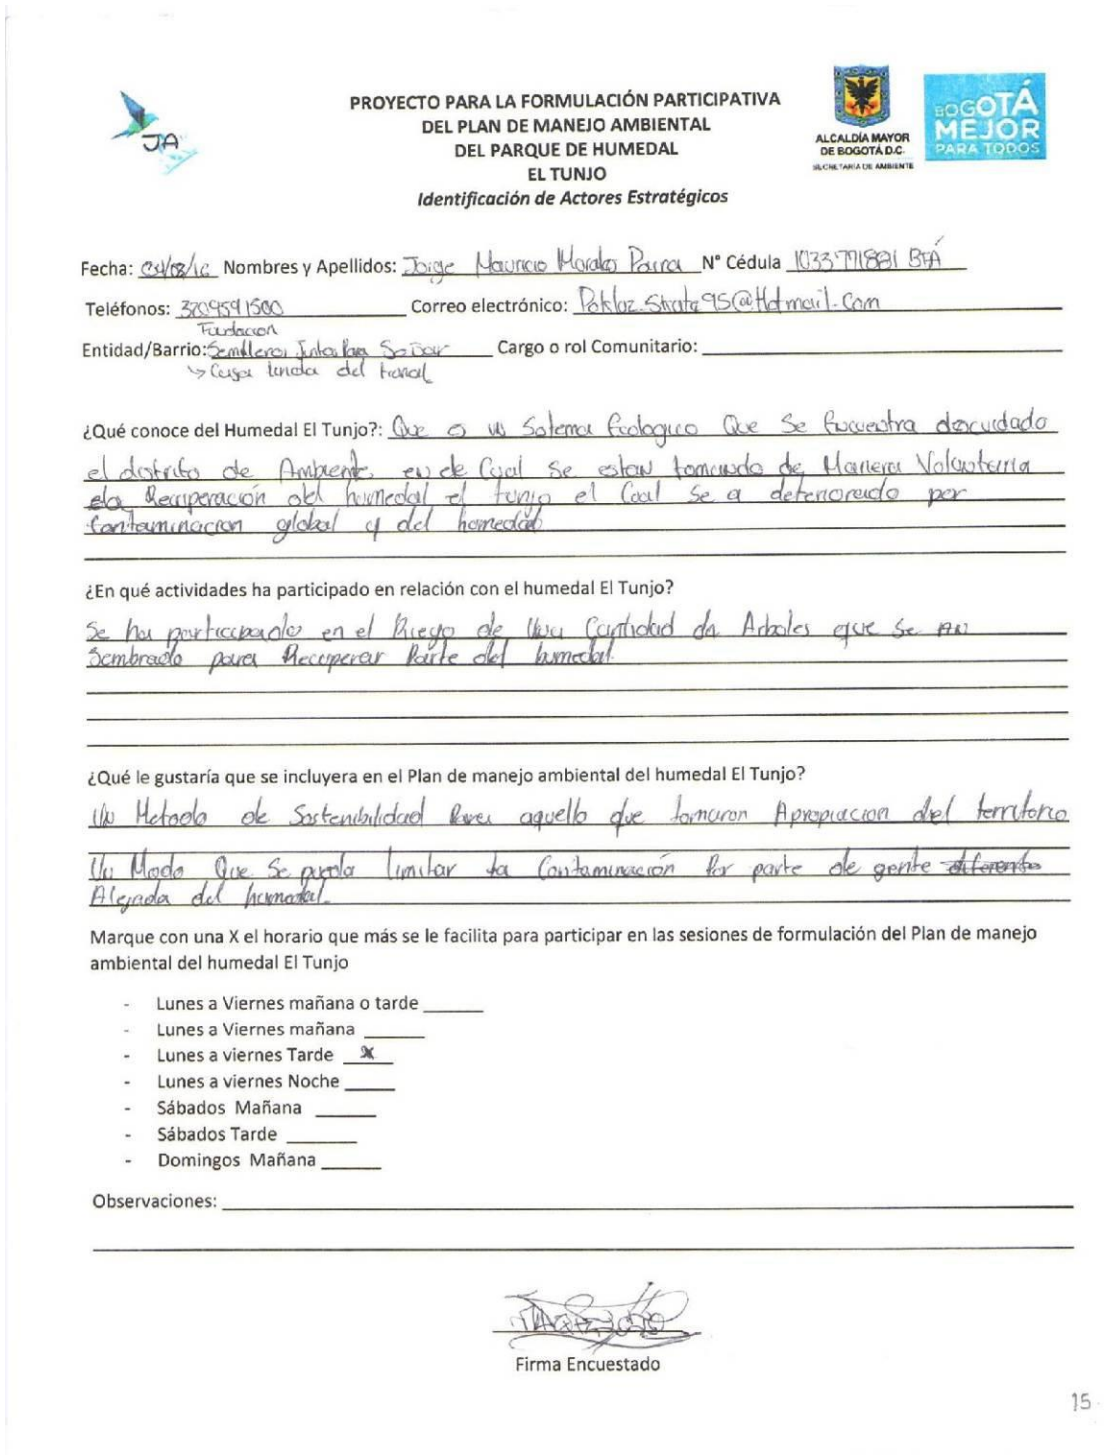 JA
PROYECTO PARA LA FORMULACIÓN PARTICIPATIVA
DEL PLAN DE MANEJO AMBIENTAL
DEL PARQUE DE HUMEDAL
EL TUNJO
Identificación de Actores Estratégicos
ALCALDÍA MAYOR
DE BOGOTÁ D.C.
SECRETARÍA DE AMBIENTE
BOGOTÁ
MEJOR
PARA TODOS
Fecha: Nombres y Apellidos: Jorge Mauricio Morales Parra N° Cédula
Teléfonos: 3209591500 Correo electrónico:
Fundacion
Entidad/Barrio: Semilleros Juntos Para Soñar Cargo o rol Comunitario:
del tunal
¿Qué conoce del Humedal El Tunjo?: Que es un Ecologico Que Se Encuentra descuidado
el distrito de Ambiente, en de Cual Se estan tomando de Manera Voluntaria
Recuperación del humedal el tunjo el Cual Se a deteriorado por
Contaminacion global y del humedal
¿En qué actividades ha participado en relación con el humedal El Tunjo?
Se ha participado en el Riego de Una Cantidad de Arboles que Se AN
Sembrado para Recuperar Parte del humedal.
¿Qué le gustaría que se incluyera en el Plan de manejo ambiental del humedal El Tunjo?
Un Metodo de Sostenibilidad Para aquello que tomaron Apropiacion del territorio
Un Modo Que Se pueda limitar la Contaminación Por parte de gente diferente
Alejada del humedal.
Marque con una X el horario que más se le facilita para participar en las sesiones de formulación del Plan de manejo
ambiental del humedal El Tunjo
- Lunes a Viernes mañana o tarde
- Lunes a Viernes mañana
- Lunes a viernes Tarde X
- Lunes a viernes Noche
- Sábados Mañana
- Sábados Tarde
- Domingos Mañana
Observaciones:
Firma Encuestado
15